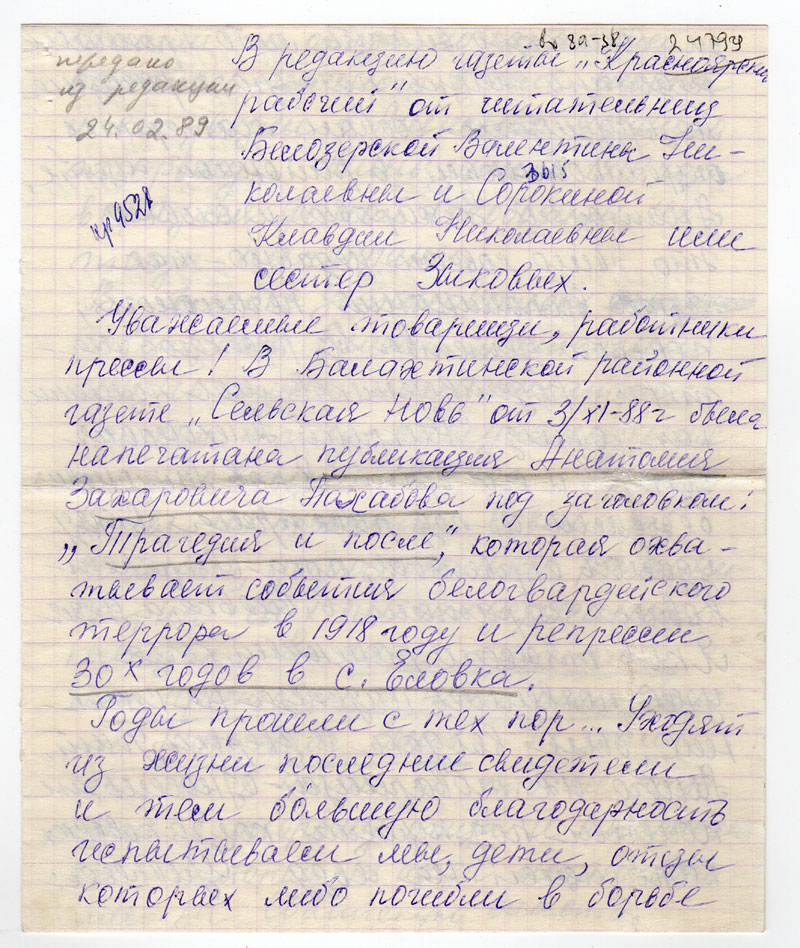 вх 89-38 24799
передано
из редакции
24.02.89
пр 4528
В редакцию газеты „Красноярский
рабочий" от читательниц
Белозерской Валентины Ни-
колаевны и Сорокиной
Клавдии Николаевны или
сестер Зыковых.
Уважаемые товарищи, работники
прессы! В Балахтинской районной
газете „Сельская Новь" от 3/XI-88 г была
напечатана публикация Анатолия
Захаровича Пахабова под заголовком:
„Трагедия и после", которая охва-
тывает события белогвардейского
террора в 1918 году и репрессии
30х годов в с. Еловка.
Годы прошли с тех пор... Уходят
из жизни последние свидетели
и тем бо́льшую благодарность
испытываем мы, дети, отцы
которых либо погибли в борьбе